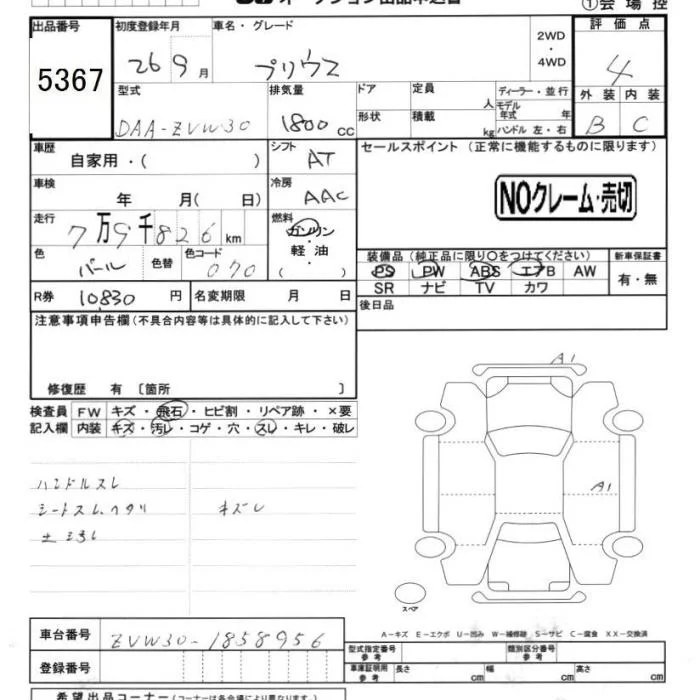 オークション出品申込書 ①会場控
出品番号 初度登録年月 車名・グレード 2WD・4WD 評価点
5367 26 9月 プリウス 4
型式 排気量 ドア 定員 人 ディーラー・並行 外装 内装
DAA-ZVW30 1800cc 形状 積載 kg モデル年式 年 ハンドル 左・右 B C
車歴 自家用・( ) シフト AT セールスポイント (正常に機能するものに限ります)
車検 年 月(日) 冷房 AAC NOクレーム・売切
走行 7万9千826km 燃料 ガソリン 軽油 ・( )
色 パール 色替 色コード 070
装備品 (純正品に限り○をつけてください) 新車保証書
PS PW ABS エアB AW 有・無
SR ナビ TV カワ
R券 10830円 名変期限 月 日 後日品
注意事項申告欄 (不具合内容等は具体的に記入して下さい)
修復歴 有 〔箇所 〕
検査員 FW キズ・飛石・ヒビ割・リペア跡・×要
記入欄 内装 キズ・汚レ・コゲ・穴・スレ・キレ・破レ
A1
A1
ハンドルスレ
シートスレ、ヘタリ キズレ
スペア
A-キズ E-エクボ U-凹み W-補修跡 S-サビ C-腐食 XX-交換済
車台番号 ZVW30-1858956
型式指定番号 参考 類別区分番号 参考
登録番号 車庫証明用 参考 長さ cm 幅 cm 高さ cm
希望出品コーナー (コーナーは各会場により異なります。)